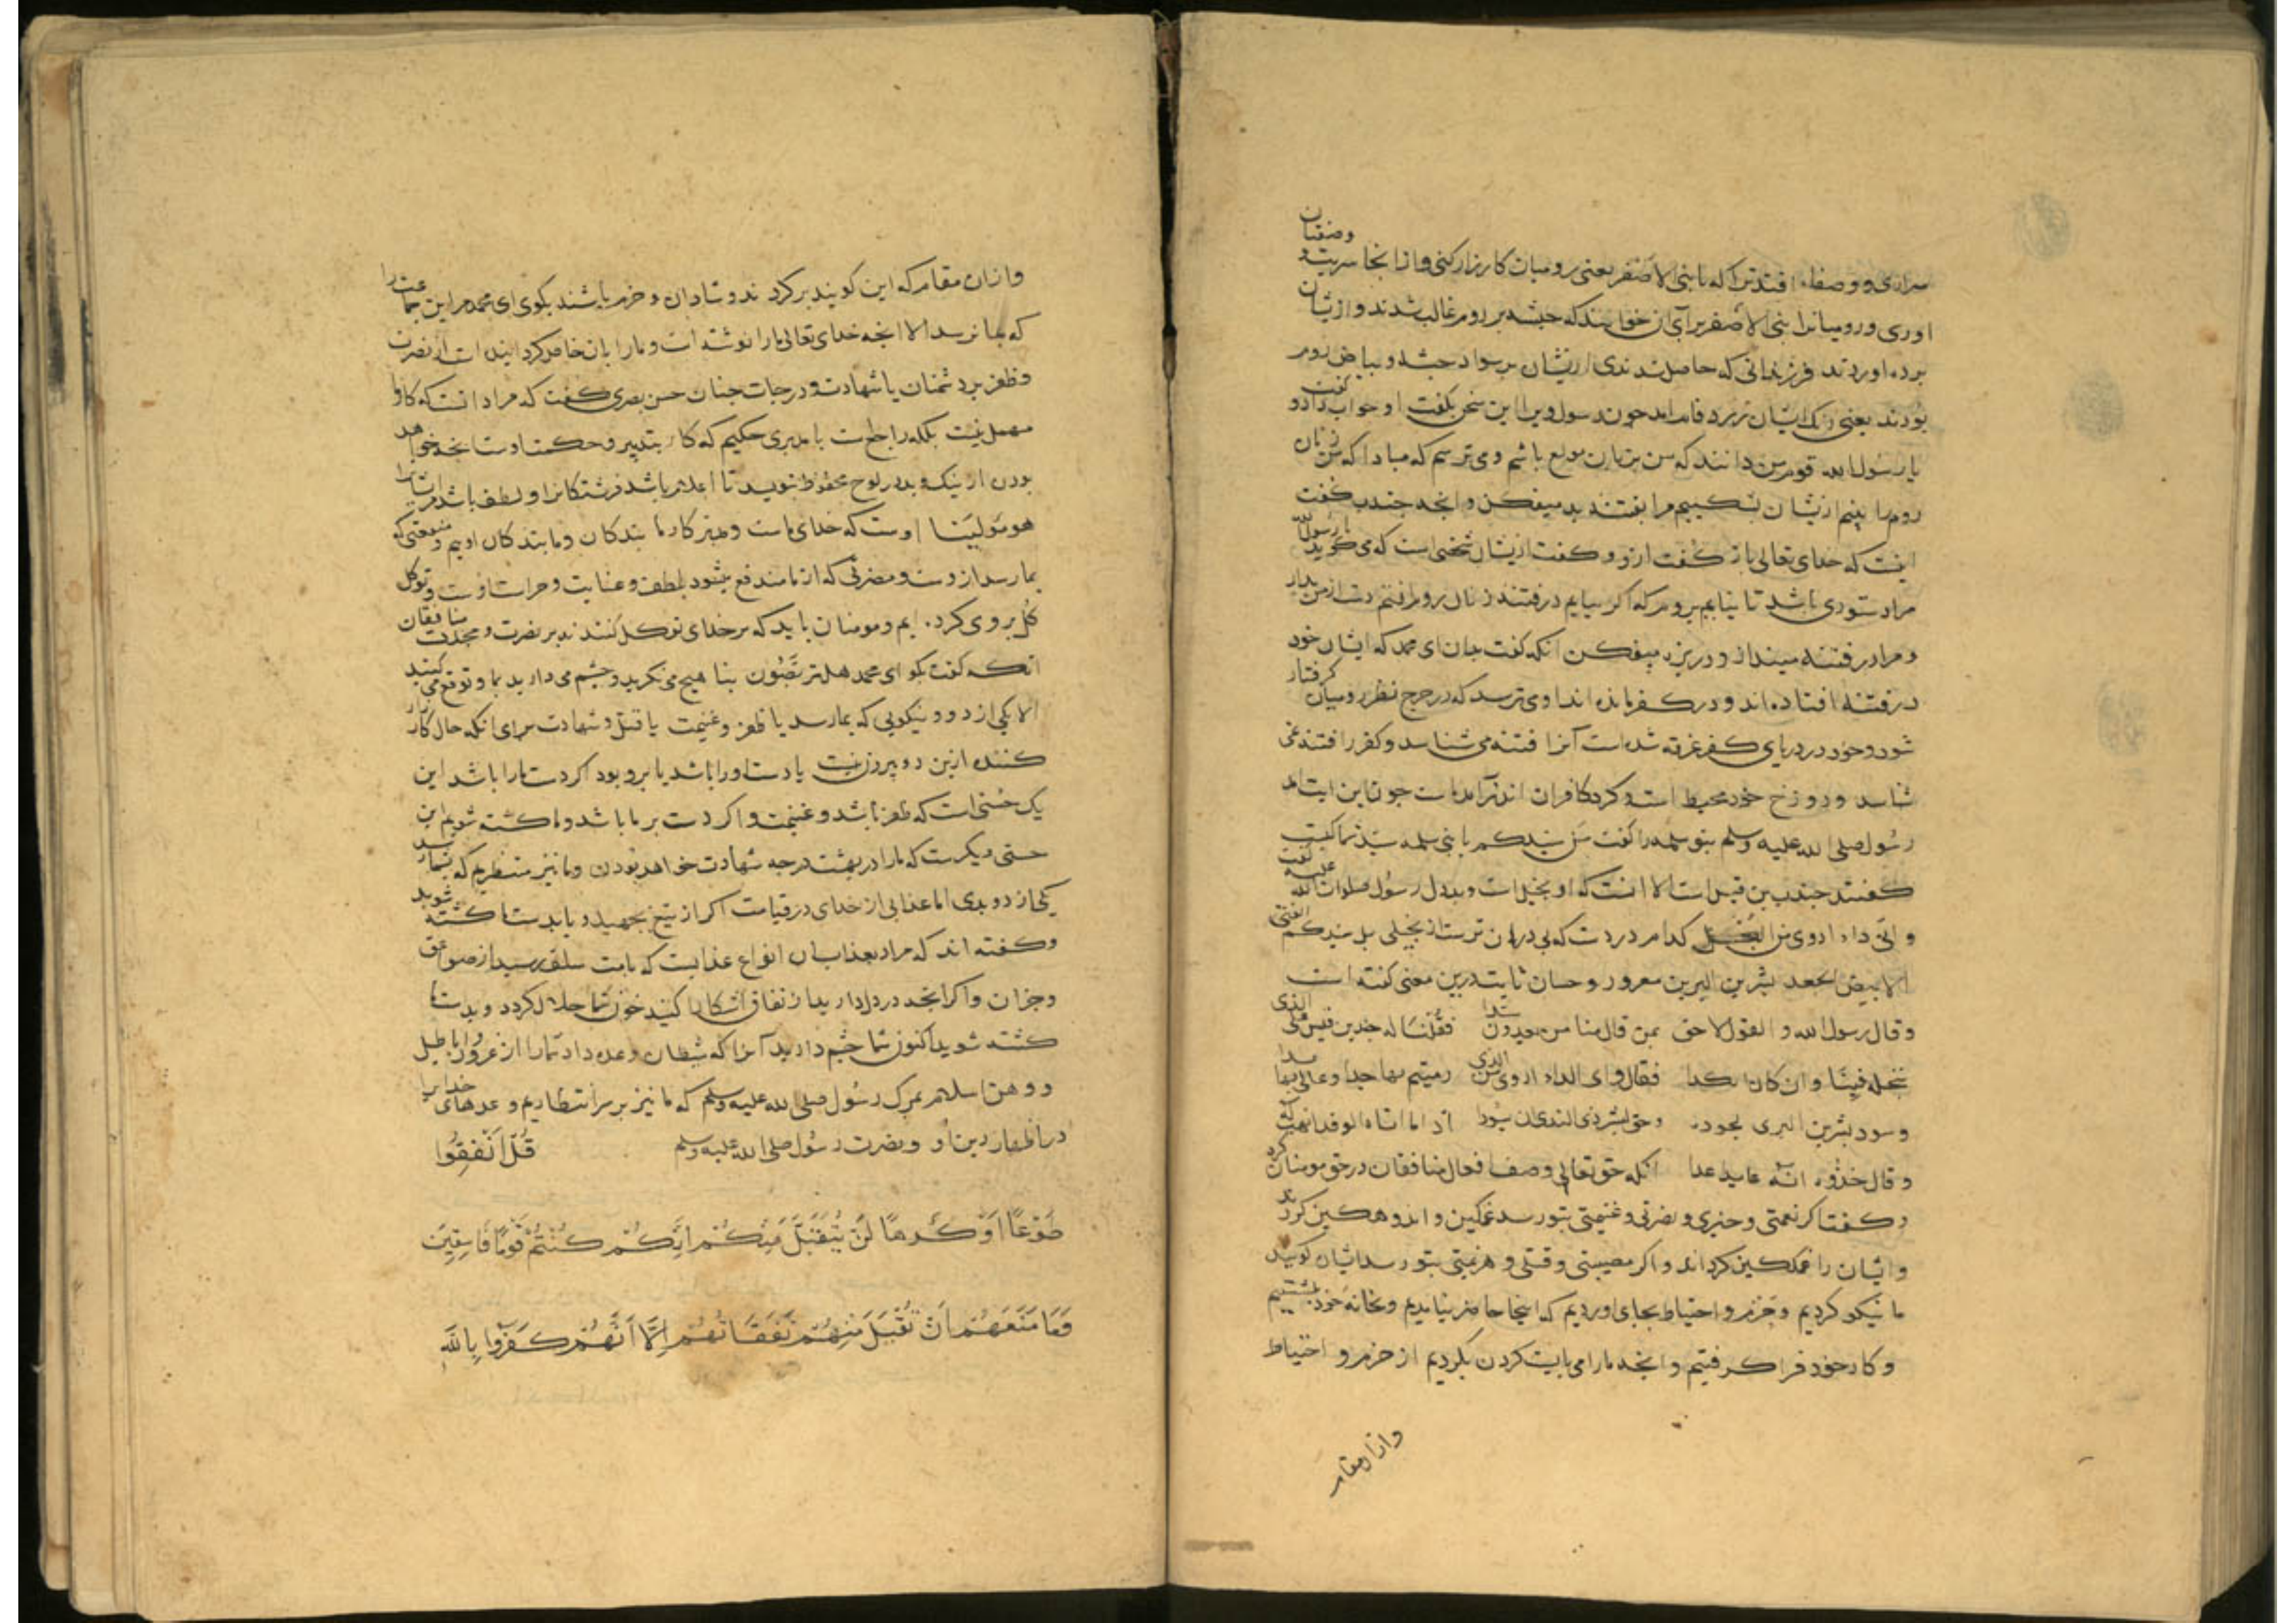 سراری و وصفاء افتد ترا که با بنی الاصفر یعنی رومیان کارزار کنی و از انجا سریت و وصفتان
اوری و رومیانرا بنی الاصفر برای ان خوانند که حبشه بر روم غالب شدند و از یشان
برده اوردند فرزندانی که حاصل شدندی از یشان بر سواد حبشه و بیاض روم
بودند یعنی رنک ایشان بزردی فام امد چون رسول ویرا این سخن بکفت او جواب داد و کفت
یا رسول الله قوم من دانند که من بزنان مولع باشم و می ترسم که مبادا که من زنان
روم را بینم از یشان نشکیبم مرا بفتنه میفکن و انجه جندب کفت
اینست که خدای تعالی باز کفت ازو و کفت از یشان شخصی است که می کوید یا رسول الله
مرا دستوری باشد تا نیایم بروم که اکر بیایم در فتنه زنان روم افتم دست از من بدار
و مرا در فتنه مینداز و در بزه میفکن انکه کفت بدان ای محمد که ایشان خود
در فتنه افتاده اند و در کفر مانده اند او می ترسد که در حرج نظر رومیان کرفتار
شود و خود در دریای کفر غرقه شده است آنرا فتنه می شناسد و کفر را فتنه نمی
شناسد و دوزخ خود محیط است و کرد کافران اندر آمده است چون این ایت امد
رسول صلی الله علیه وسلم بنو سلمه را کفت من سیدکم یا بنی سلمه سید شما کیست
کفتند جندب بن قیس است الا انست که او بخیل است و بددل رسول صلوات الله علیه کفت
و ائی داء ادوی من البخل کدام درد است که بی درمان تر است از بخیلی بل سیدکم الفتی
الابیض الجعد بشر بن البراء بن معرور و حسان ثابت درین معنی کفته است
وقال رسول الله و القول لاحق بمن قال منا من تعدون سیدا فقلنا له جد بن قیس علی الذی
نبخله فینا وان کان انکدا فقال وای الداء ادوی من الذی رمیتم بها جدا وعالی بها یدا
وسود بشر بن البری بجوده وحق لبشر ذی الندی ان یسودا اذا ما اتاه الوفد انهب ماله
وقال خذوه انه عاید غدا انکه حق تعالی وصف افعال منافقان در حق مومنان کرد
و کفت اکر نعمتی و خیری و نصرتی و غنیمتی بتو رسد غمکین و اندوهکین کردند
و ایشان را غمکین کرداند و اکر مصیبتی و قتلی و هزیمتی بتو رسد ایشان کویند
ما نیکو کردیم و حزم و احتیاط بجای اوردیم که اینجا حاضر نیامدیم و بخانه خود بنشستیم
و کار خود فرا کرفتیم و انجه ما را می بایست کردن بکردیم از حزم و احتیاط
وازان مقام
وازان مقام که این کویند بر کردند و شادان و خرم باشند بکوی ای محمد مر این جماعت را
که بما نرسد الا انجه خدای تعالی ما را نوشته است و ما را بان خاص کردانیده است از نصرت
و ظفر بر دشمنان یا شهادت و درجات جنان حسن بصری کفت که مراد انست که کار ما
مهمل نیست بلکه راجع است با مدبری حکیم که کار بتدبیر و حکمت اوست انجه خواهد
بودن از نیک و بد در لوح محفوظ بنویسد تا اعلام باشد فرشتکانرا و لطف باشد مر ایشانرا
هو مولینا اوست که خدای ماست و مهتر کار ما بندکان و ما بندکان اویم و منفعتی که
بما رسد ازوست و مضرتی که از ما مندفع بشود بلطف و عنایت و حراست اوست و توکل
کل بر وی کرده ایم و مومنان باید که بر خدای توکل کنند نه بر نصرت و نجدت منافقان
انکه کفت بکو ای محمد هل تربصون بنا هیج می نکرید و جشم می دارید بما و توقع می کنید
الا یکی از دو نیکویی که بما رسد یا ظفر و غنیمت یا قتل و شهادت برای انکه حال کارزار
کننده ازین دو بیرون نیست یا دست اورا باشد یا برو بود اکر دست ما را باشد این
یک حسنی است که ظفر باشد و غنیمت و اکر دست بر ما باشد و ما کشته شویم این
حسنی دیکرست که ما را در بهشت درجه شهادت خواهد بودن و ما نیز منتظریم که بشما رسد
یکی از دو بدی اما عذابی از خدای در قیامت اکر از تیغ بجهید و یا بدست ما کشته شوید
و کفته اند که مراد بعذاب ان انواع عذابیست که بامت سلف رسید از صواعق
و جزان و اکر انجه در دل دارید از نفاق اشکارا کنید خون شما حلال کردد و بدست ما
کشته شوید اکنون شما جشم دارید آنرا که شیطان وعده داد شما را از غرور و اباطیل
و وهن اسلام بمرک رسول صلی الله علیه وسلم که ما نیز بر سر انتظاریم وعدهای خدایرا
در اظهار دین او و نصرت رسول صلی الله علیه وسلم قُلْ اَنْفِقُوا
طَوْعًا اَوْ كَرْهًا لَنْ يُتَقَبَّلَ مِنْكُمْ اِنَّكُمْ كُنْتُمْ قَوْمًا فَاسِقِينَ
وَمَا مَنَعَهُمْ اَنْ تُقْبَلَ مِنْهُمْ نَفَقَاتُهُمْ اِلَّا اَنَّهُمْ كَفَرُوا بِاللَّهِ